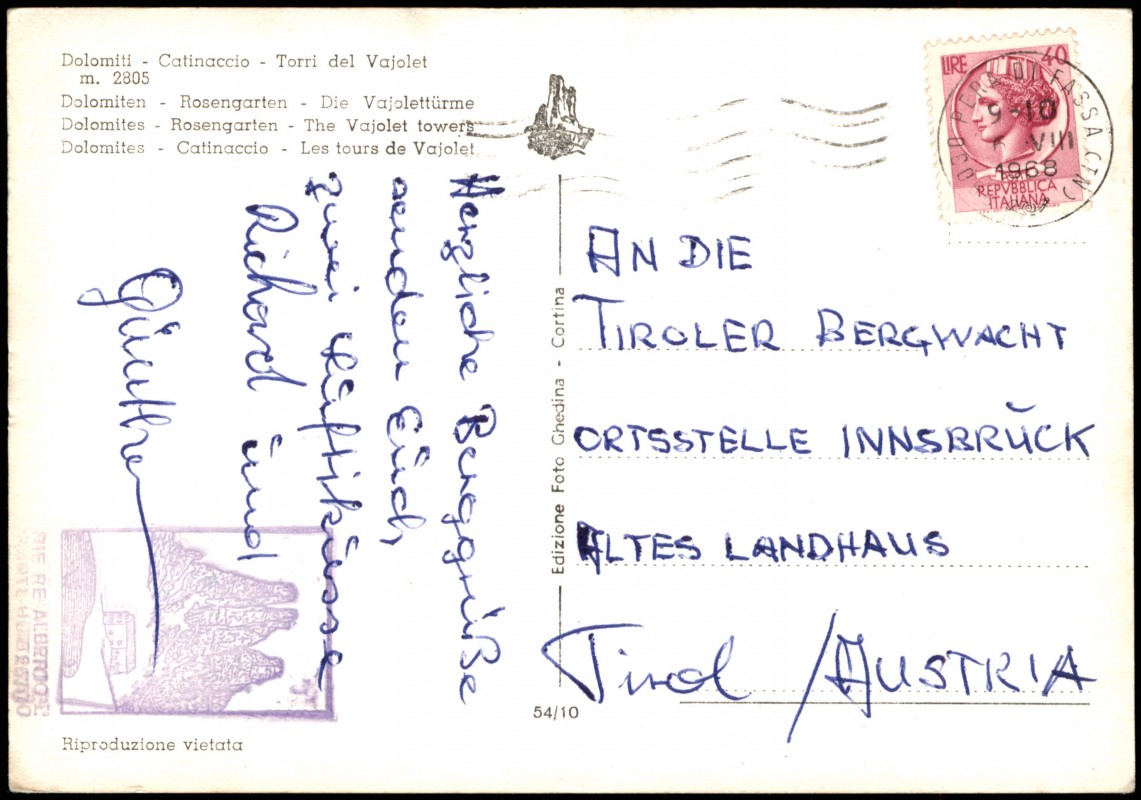 Dolomiti - Catinaccio - Torri del Vajolet
m. 2805
Dolomiten - Rosengarten - Die Vajolettürme
Dolomites - Rosengarten - The Vajolet towers
Dolomites - Catinaccio - Les tours de Vajolet
Herzliche Berggrüße
senden Euch,
zwei
Richard und
Günther
Riproduzione vietata
Edizione Foto Ghedina - Cortina
54/10
LIRE 40
REPVBBLICA
ITALIANA
PERA DI FASSA (TN)
9-10
VIII
1968
AN DIE
TIROLER BERGWACHT
ORTSSTELLE INNSBRUCK
ALTES LANDHAUS
Tirol / AUSTRIA